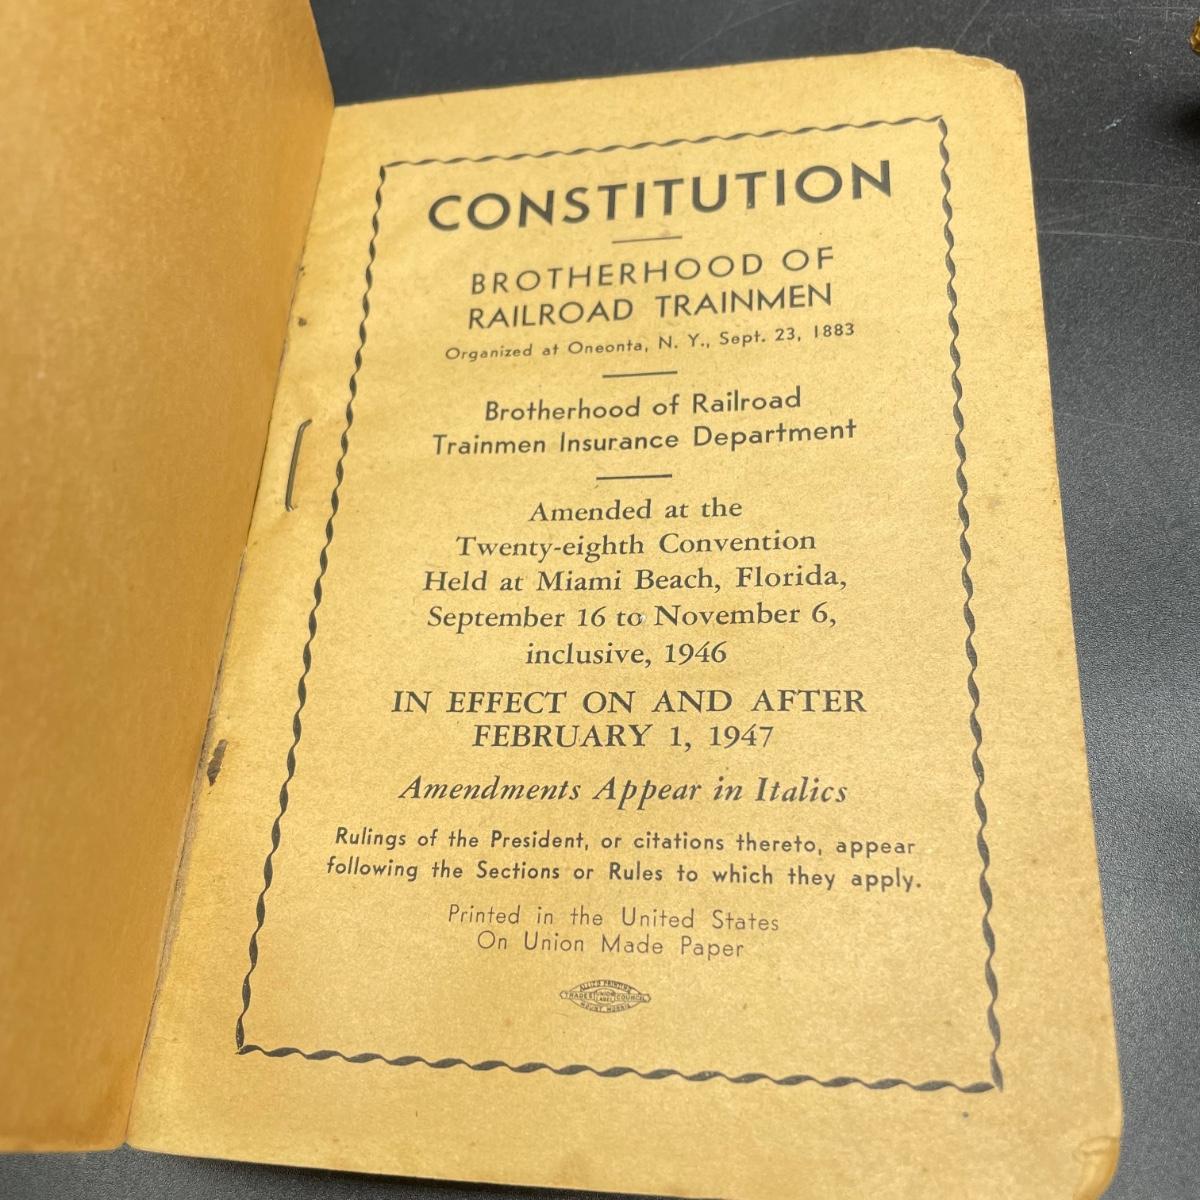 CONSTITUTION
BROTHERHOOD OF
RAILROAD TRAINMEN
Organized at Oneonta, N. Y., Sept. 23, 1883
Brotherhood of Railroad
Trainmen Insurance Department
Amended at the
Twenty-eighth Convention
Held at Miami Beach, Florida,
September 16 to November 6,
inclusive, 1946
IN EFFECT ON AND AFTER
FEBRUARY 1, 1947
Amendments Appear in Italics
Rulings of the President, or citations thereto, appear
following the Sections or Rules to which they apply.
Printed in the United States
On Union Made Paper
ALLIED PRINTING
TRADES UNION LABEL COUNCIL
MOUNT MORRIS